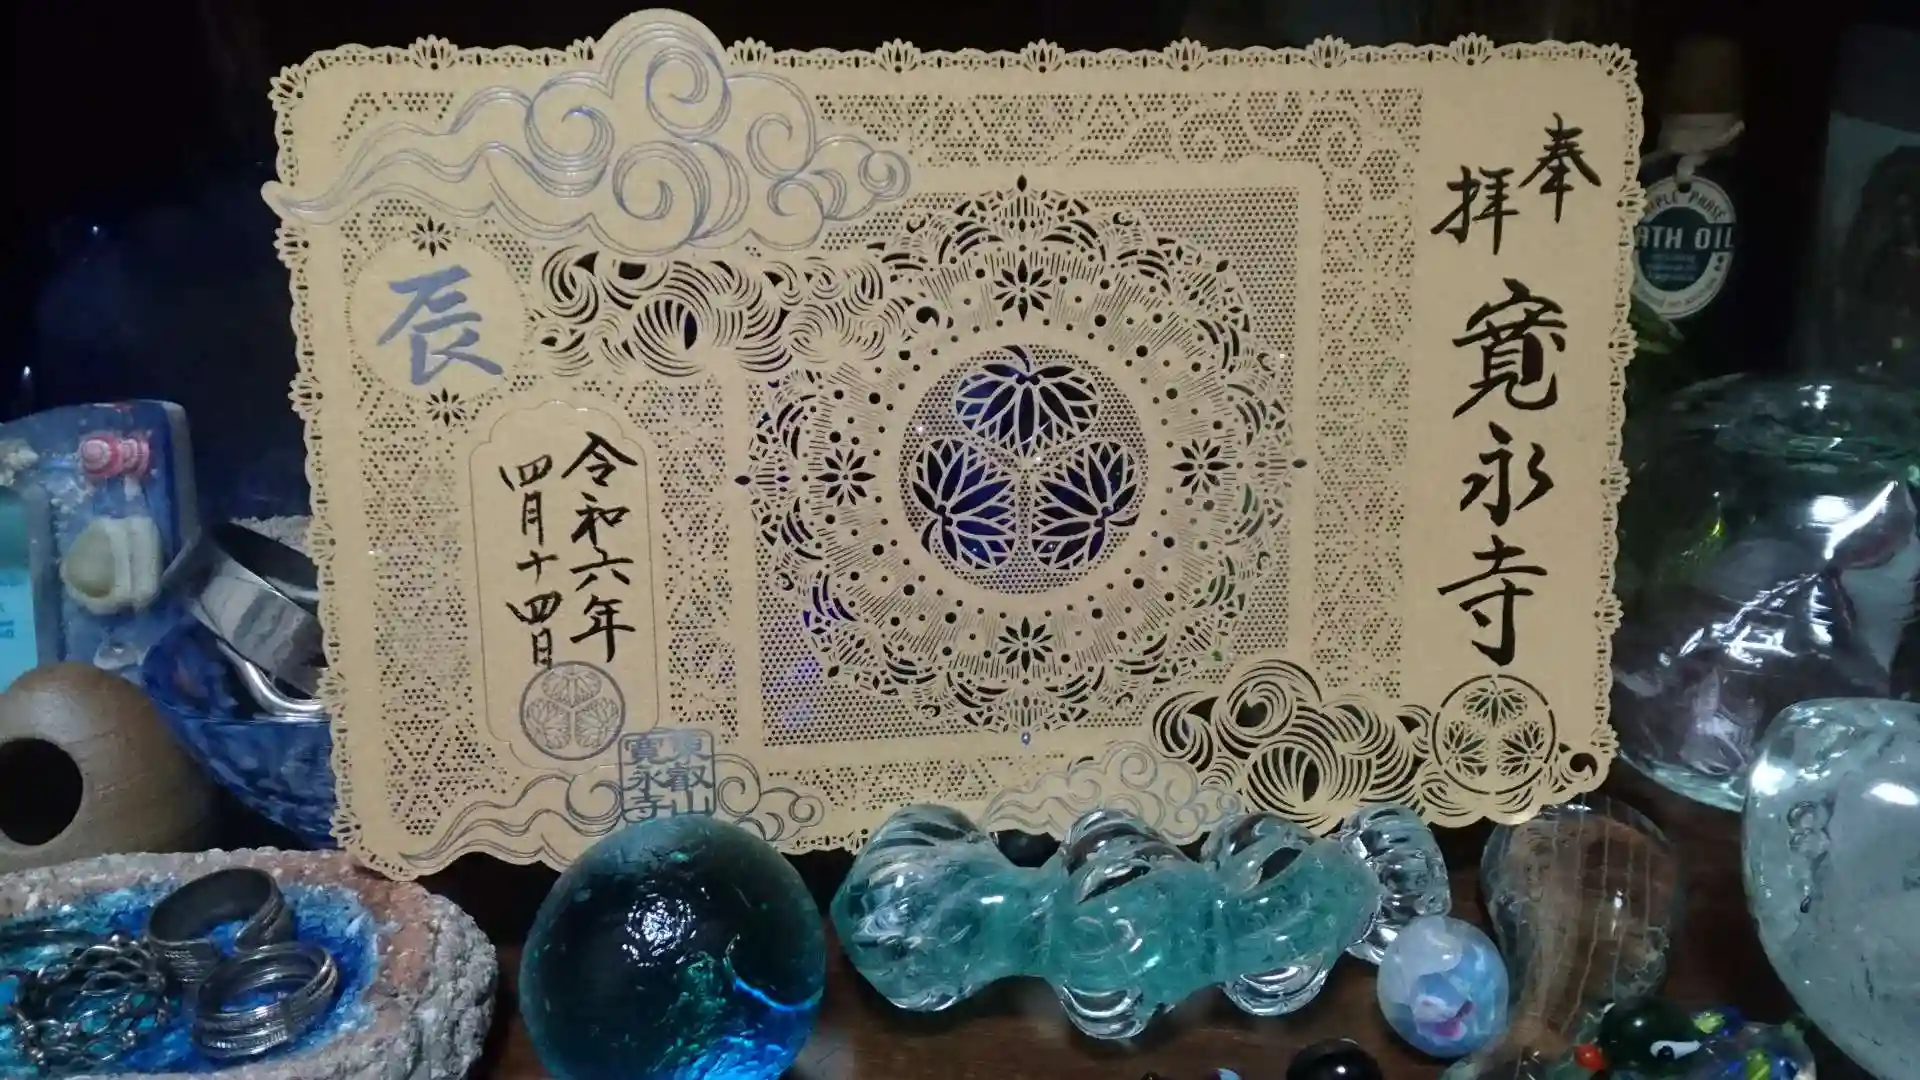 奉拝
寛永寺
辰
令和六年
四月十四日
東叡山
寛永寺
ATH OIL